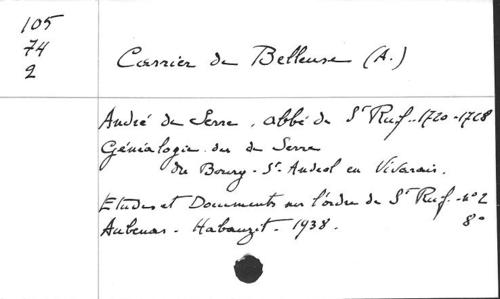 105
74
2
Carrier de Belleuse (A.)
André de Serre, abbé de St Ruf. 1720-1728
Généalogie des de Serre
du Bourg-St Andéol en Vivarais.
Etudes et Documents sur l'ordre de St Ruf. n° 2
Aubenas. Habauzit. 1938. 8°